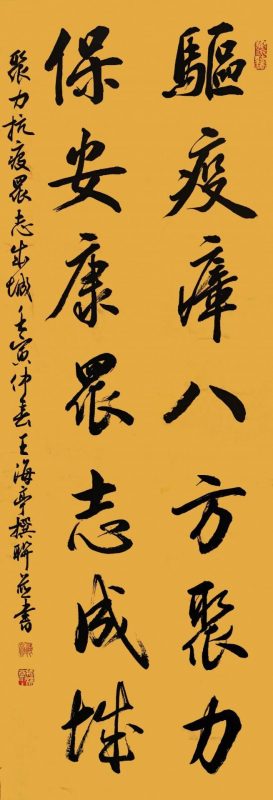 驅疫瘴八方聚力
保安康眾志成城
聚力抗疫眾志成城壬寅仲春王海亭撰聯並書